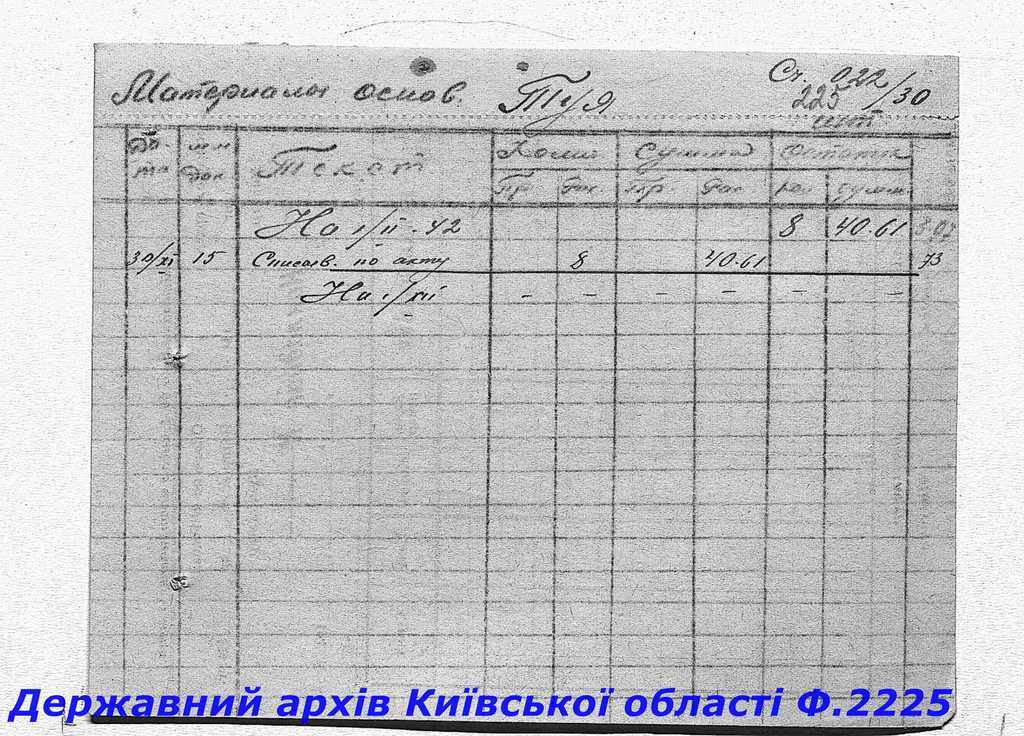 Материалы основ. Туя Сч. 022/30
225
шт
Да- та №№ док Текст Колич Сумма Остаток
Пр. Рас Пр. Рас кол сумм.
На 1/II-42 8 40-61
30/XI 15 Списыв. по акту 8 40-61 73
На 1/XII - - - - - -
Державний архів Київської області Ф.2225